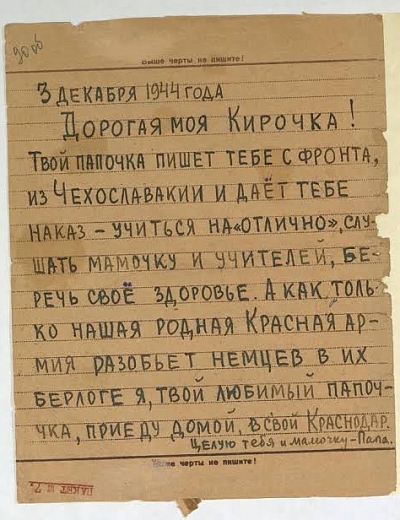 Выше черты не пишите!
3 ДЕКАБРЯ 1944 ГОДА
ДОРОГАЯ МОЯ КИРОЧКА!
ТВОЙ ПАПОЧКА ПИШЕТ ТЕБЕ С ФРОНТА,
ИЗ ЧЕХОСЛАВАКИИ И ДАЁТ ТЕБЕ
НАКАЗ – УЧИТЬСЯ НА «ОТЛИЧНО», СЛУ-
ШАТЬ МАМОЧКУ И УЧИТЕЛЕЙ, БЕ-
РЕЧЬ СВОЁ ЗДОРОВЬЕ. А КАК ТОЛЬ-
КО НАШАЯ РОДНАЯ КРАСНАЯ АР-
МИЯ РАЗОБЬЕТ НЕМЦЕВ В ИХ
БЕРЛОГЕ Я, ТВОЙ ЛЮБИМЫЙ ПАПОЧ-
ЧКА, ПРИЕДУ ДОМОЙ, В СВОЙ КРАСНОДАР.
Целую тебя и мамочку – Папа.
Ниже черты не пишите!